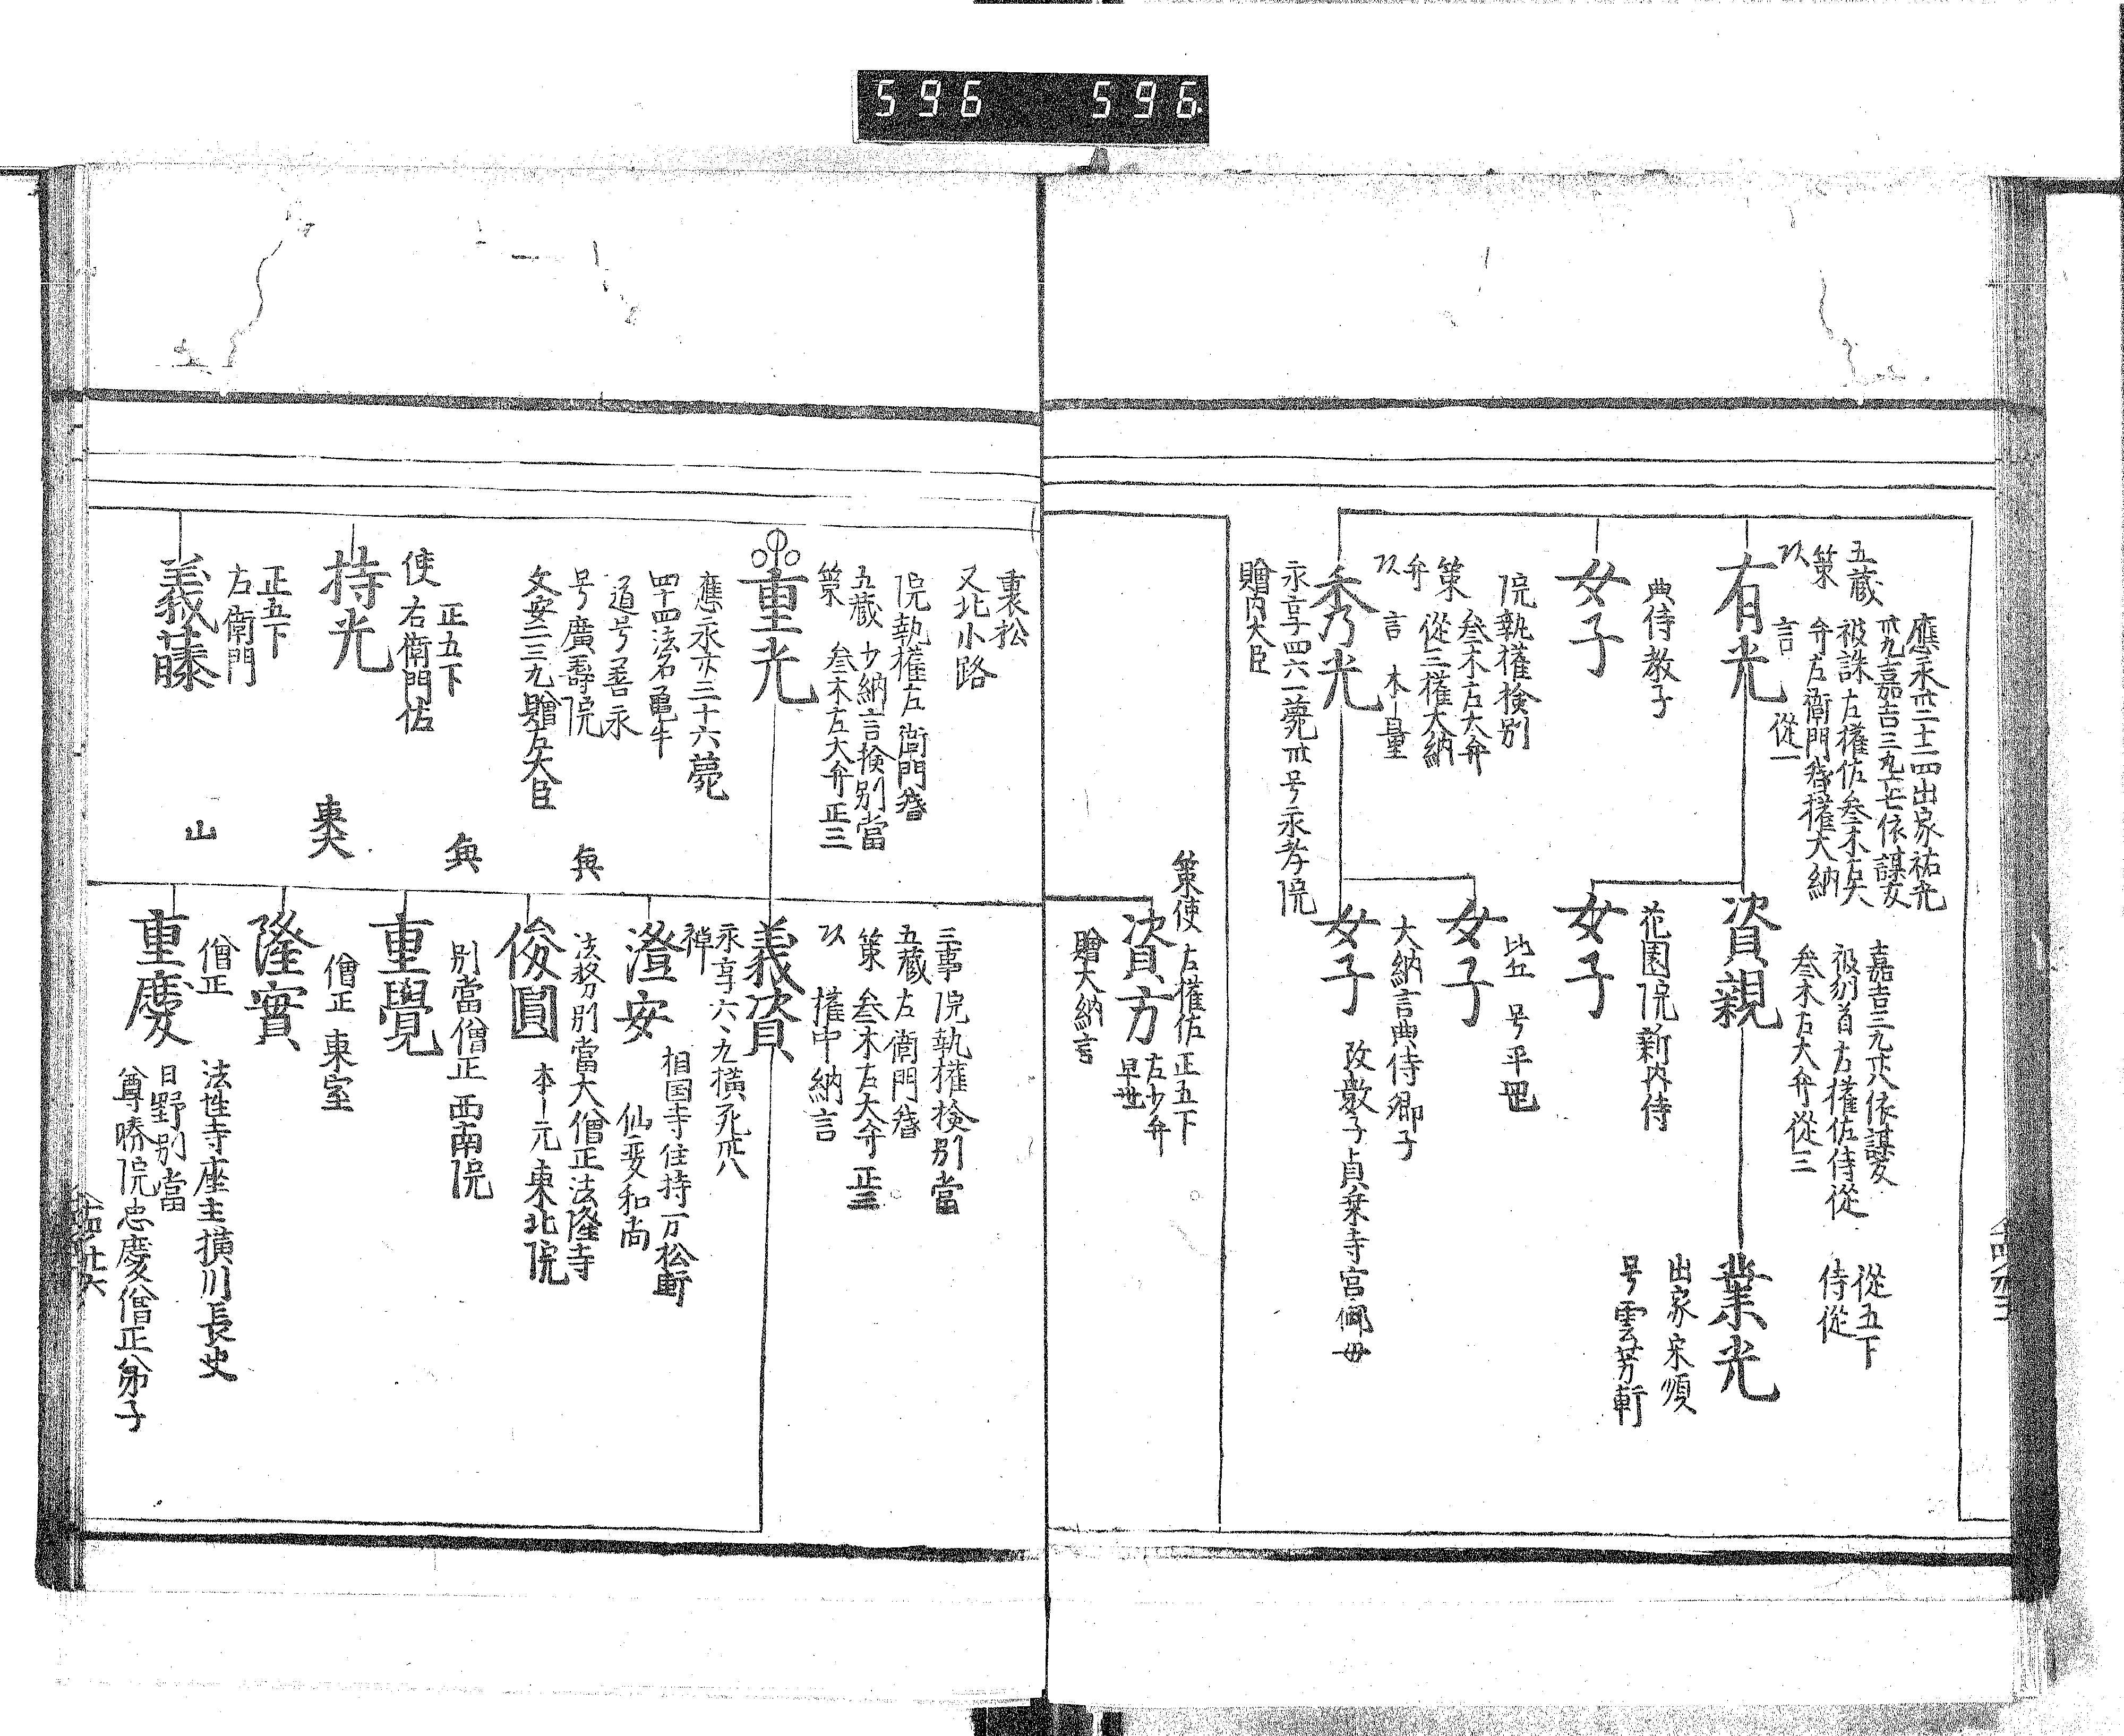 596 596
五藏
策
應永廿二十二四出家祐光
廿九嘉吉三九廿七依謀叛
被誅左權佐叅木右大
弁左衛門督權大納
言 從一
有光
典侍教子
女子
院執權検別
叅木右大弁
策 從三權大納
弁
言 本量
秀光
永享四六一薨 号永孝院
贈内大臣
嘉吉三九廿八依謀叛
被刎首右權佐侍從
叅木右大弁從三
資親
花園院新内侍
女子
比丘 号平
女子
大納言典侍郷子
女子
改敷子貞乗寺宮御母
從五下
侍從
業光
出家宋頌
号雲芳軒
策使 左權佐正五下
左少弁
資方
早世
贈大納言
裏松
又北小路
院執權左衛門督
五藏 少納言検別當
策 叅木左大弁正三
重光
應永廿三十六薨
四十四法名亀年
道号善永
号廣壽院
文安二三九贈左大臣
使 正五下
右衛門佐
持光
正五下
右衛門
義藤
三事 院執權検別當
五藏 左衛門督
策 叅木右大弁正三
權中納言
義資
永享六六九横死廿八
禅
相国寺住持万松軒
澄安
仙叟和尚
法務別當大僧正法隆寺
俊圓
本–元東北院
興
別當僧正西南院
重覺
興
僧正東室
隆實
東大
僧正
山
法性寺座主横川長吏
重慶
日野別當
尊勝院忠慶僧正弟子